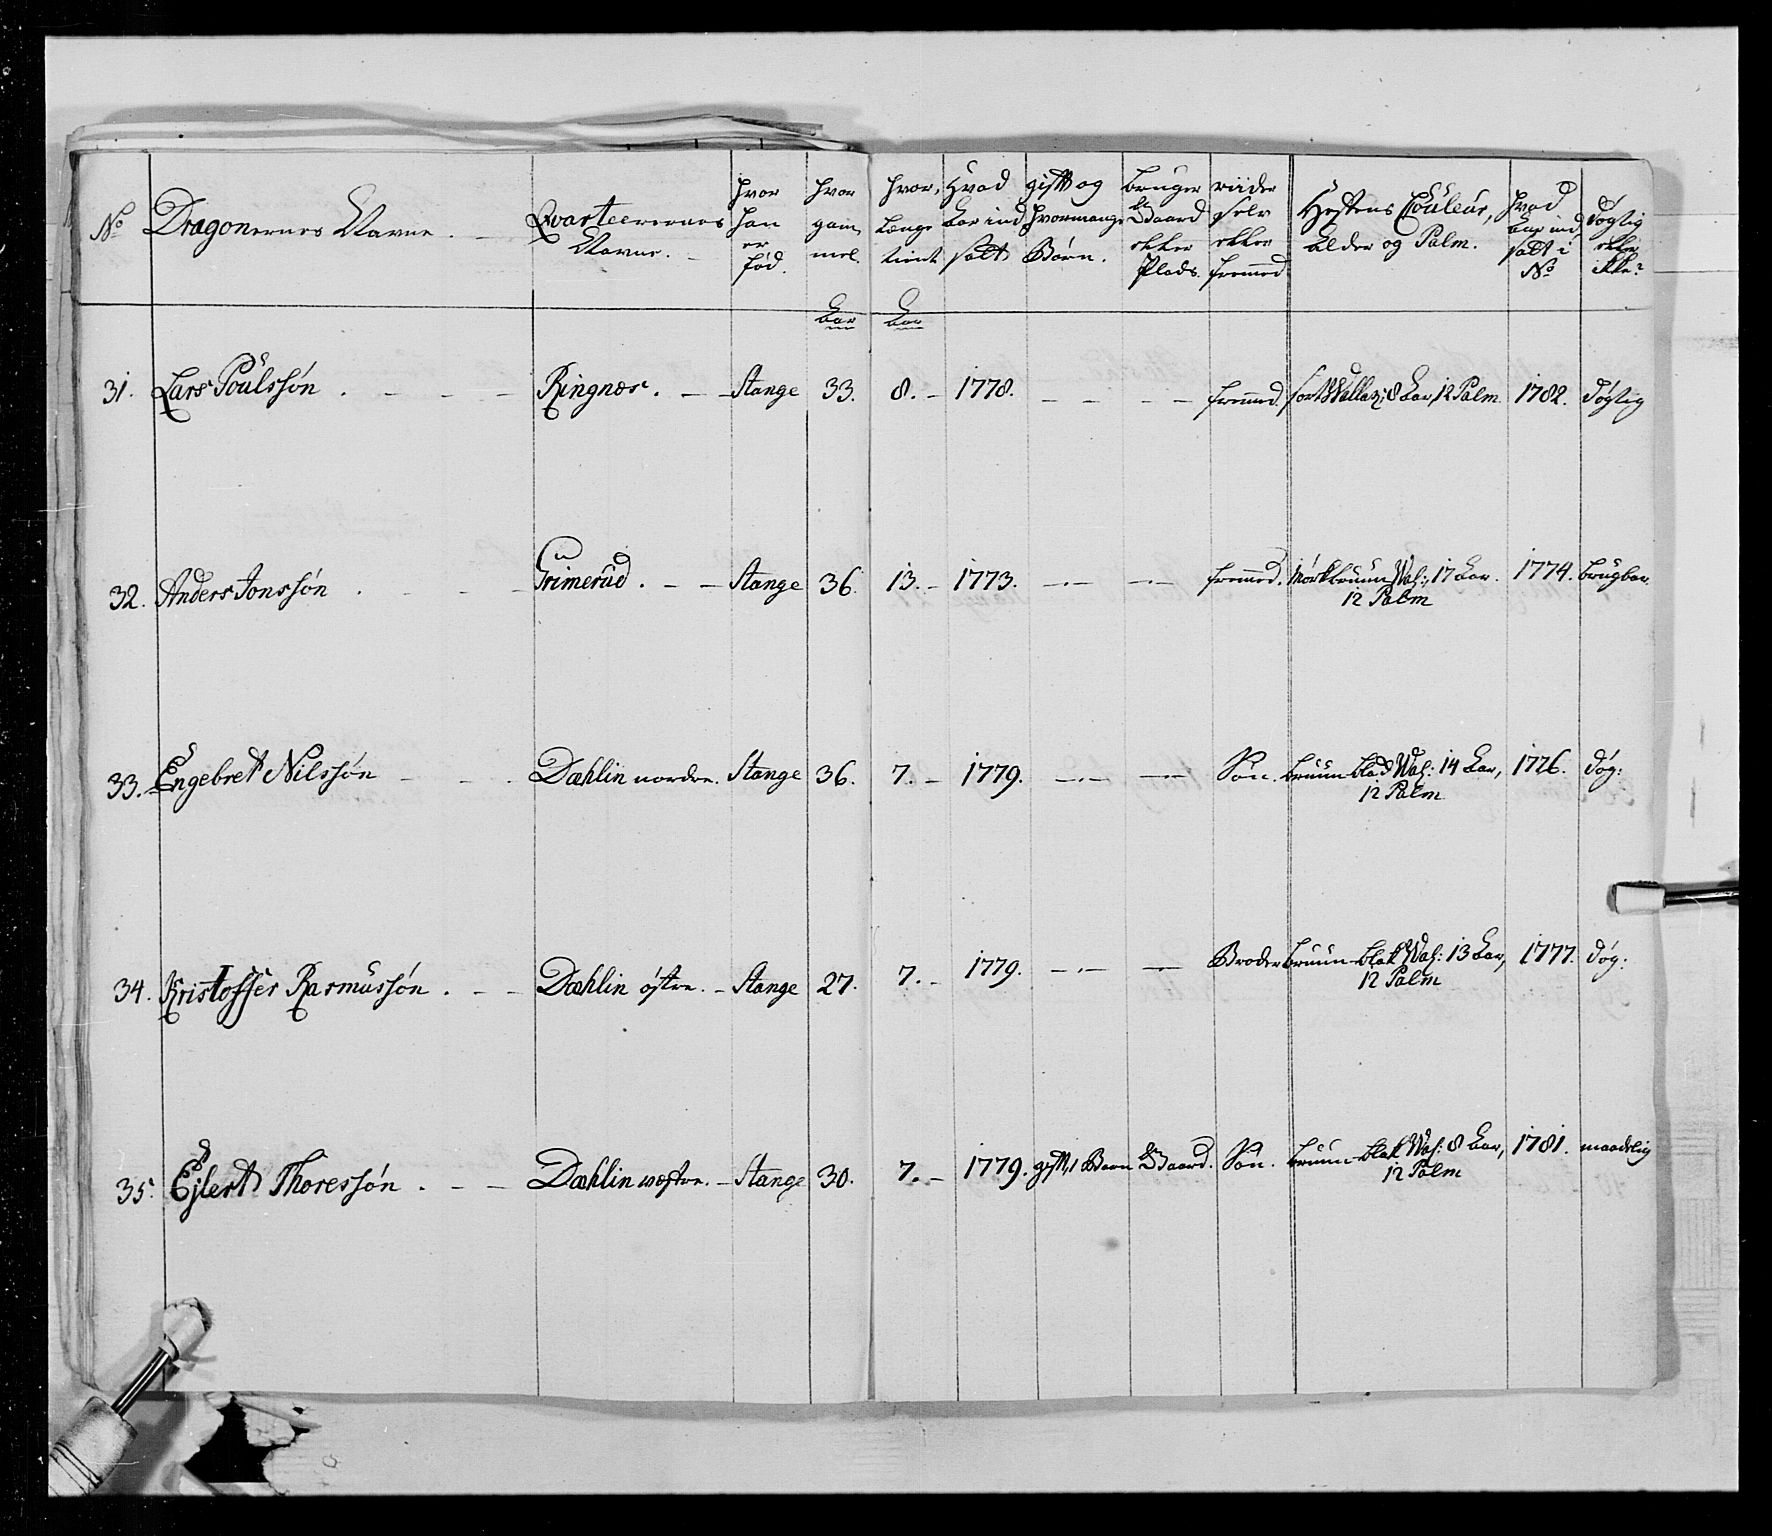 No | Dragonernes Navne. | Qvarteerernes Navne. | hvor han er fød. | hvor gam̄mel. | hvor længe tient | Hvad Aar ind satt | gift og hvormange Børn. | bruger Gaard eller Plads. | riider selv eller fremmed | Hestens Couleur, Alder og Palm. | hvad Aar ind satt i No | døgtig eller ikke?
Aar | Aar
31. | Lars Poulssøn . | Ringnes. | Stange | 33. | 8. | 1778. | — — | — — | fremmed. | sort Wallak, 8 Aar, 12 Palm. | 1782. | døgtig
32. | Anders Jonssøn . | Grimerud. | Stange | 36. | 13. | 1773. | —.— | —.— | fremmed. | Mørkbruun Wal:, 17 Aar. 12 Palm | 1774. | brugbar.
33. | Engebret Nilssøn | Dæhlin nordre. | Stange | 36. | 7. | 1779. | —.— | —.— | Søn. | bruun blad Wal: 14 Aar, 12 Palm | 1776. | døg:
34. | Kristoffer Rasmussøn . | Dæhlin østre. | Stange | 27. | 7. | 1779. | —.— | — | Broder | bruun-blak Wal: 13 Aar, 12 Palm | 1777. | døg:
35. | Ejlert Thoressøn . | Dæhlin væstre. | Stange | 30. | 7. | 1779. | gift, 1 Barn | Gaard. | Søn. | bruun-blak Wal: 8 Aar, 12 Palm | 1781. | maadelig